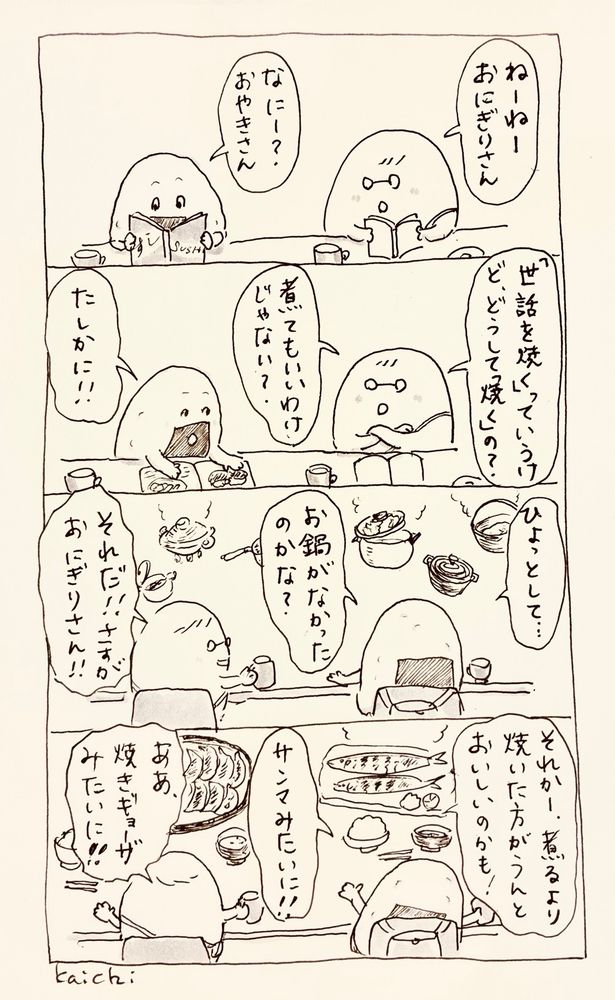 ねーねー
おにぎりさん
なにー?
おやきさん
すし
SUSHI
「世話を焼く」っていうけ
ど、どうして「焼く」の?
煮てもいいわけ
じゃない?
たしかに!!
ひょっとして…
お鍋がなかった
のかな?
それだ!!さすが
おにぎりさん!!
それかー、煮るより
焼いた方がうんと
おいしいのかも!
サンマみたいに!!
ああ、
焼きギョーザ
みたいに!!
kaichi